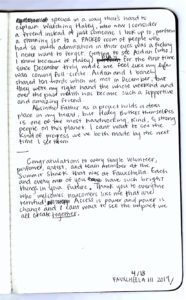 special in a way that's hard to
explain watching Hailey, who now I consider
a friend instead of just someone I look up to, perform
a stunning set to a PACKED room of people who
had so much admiration in their eyes was a feeling
I never want to forget. Getting to see Aidan (who I
know because of Hailey) for the first time
since December truly made me feel like my life
was coming full circle. Aidan and I barely
shared ten words when we met in December, but
they were my right hand the whole weekend and
over the past month has become such a supportive
and amazing friend.
Absinthe Father as a project holds a deep
place in my heart, but Haley Butters themselves
is one of the most hardworking, kind, & strong
people on this planet. I can't wait to see the
kind of progress we've both made by the next
time I see them
Congratulations to every single volunteer,
performer, artist, and team member at the
Summer Shack that was at Fauxchella. Each
and every one of you have such bright
things in your future. Thank you to everyone
who welcomes newcomers like me that are
terrified. Access is power & power is
change and I can't wait to see the impact we
all create together.
4/18
FAUXCHELLA III 2019